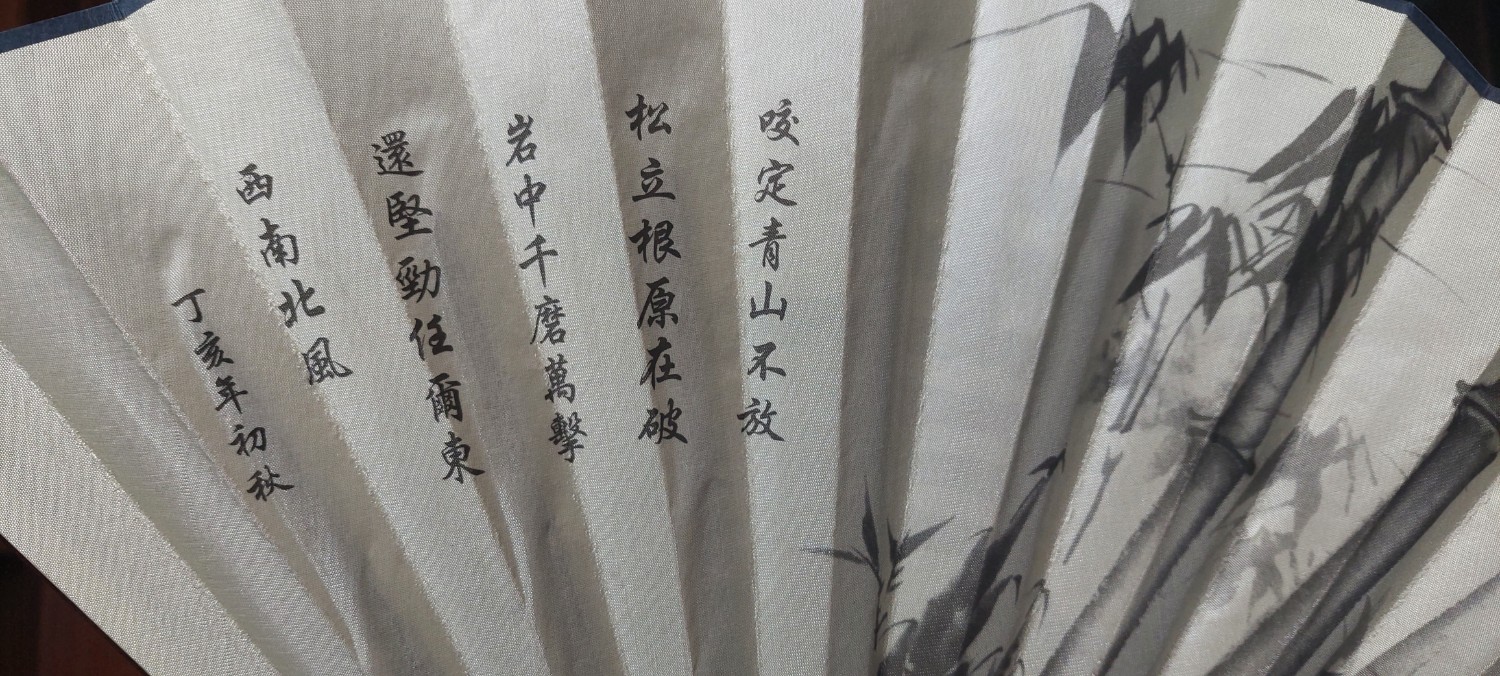 咬定青山不放
松立根原在破
岩中千磨萬擊
還堅勁任爾東
西南北風
丁亥年初秋